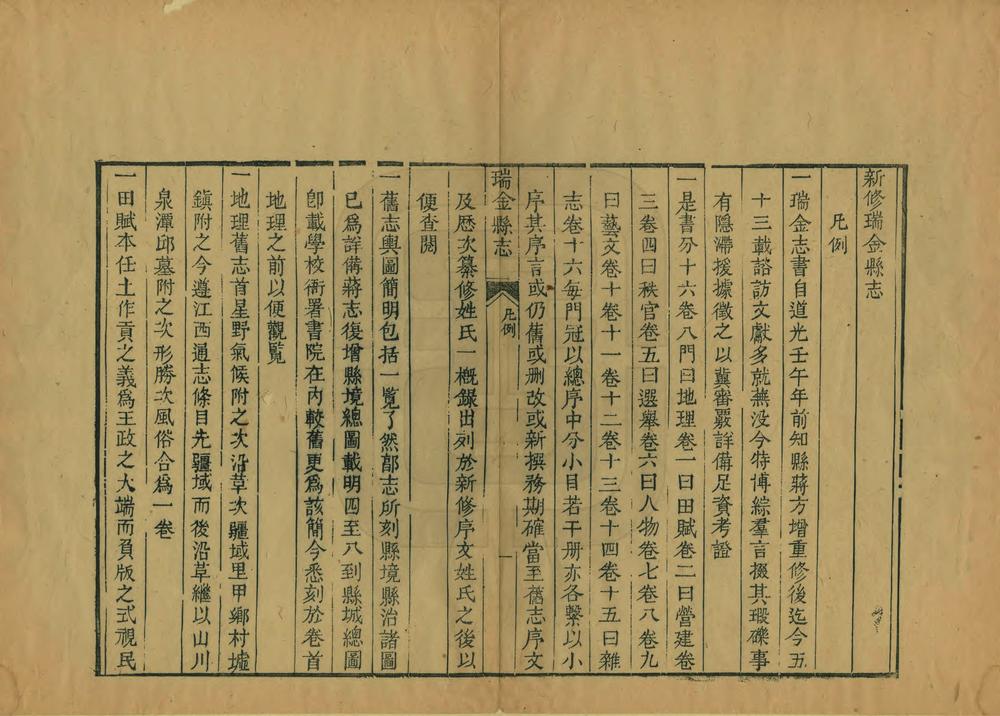 新修瑞金縣志
凡例
一瑞金志書自道光壬午年前知縣蔣方增重修後迄今五
十三載諮訪文獻多就蕪没今特博綜羣言掇其瑕礫事
有隱滯援據徵之以冀審覈詳備足資考證
一是書分十六卷八門曰地理卷一曰田賦卷二曰營建卷
三卷四曰秩官卷五曰選舉卷六曰人物卷七卷八卷九
曰藝文卷十卷十一卷十二卷十三卷十四卷十五曰雜
志卷十六每門冠以總序中分小目若干册亦各繫以小
序其序言或仍舊或删改或新撰務期確當至舊志序文
瑞金縣志
凡例
一
及歷次纂修姓氏一槪錄出列於新修序文姓氏之後以
便查閱
一舊志輿圖簡明包括一覽了然郡志所刻縣境縣治諸圖
已爲詳備蔣志復增縣境總圖載明四至八到縣城總圖
卽載學校衙署書院在内較舊更爲該簡今悉刻於卷首
地理之前以便觀覽
一地理舊志首星野氣候附之次沿革次疆域里甲鄉村墟
鎭附之今遵江西通志條目先疆域而後沿革繼以山川
泉潭邱墓附之次形勝次風俗合爲一卷
一田賦本任土作貢之義爲王政之大端而負版之式視民